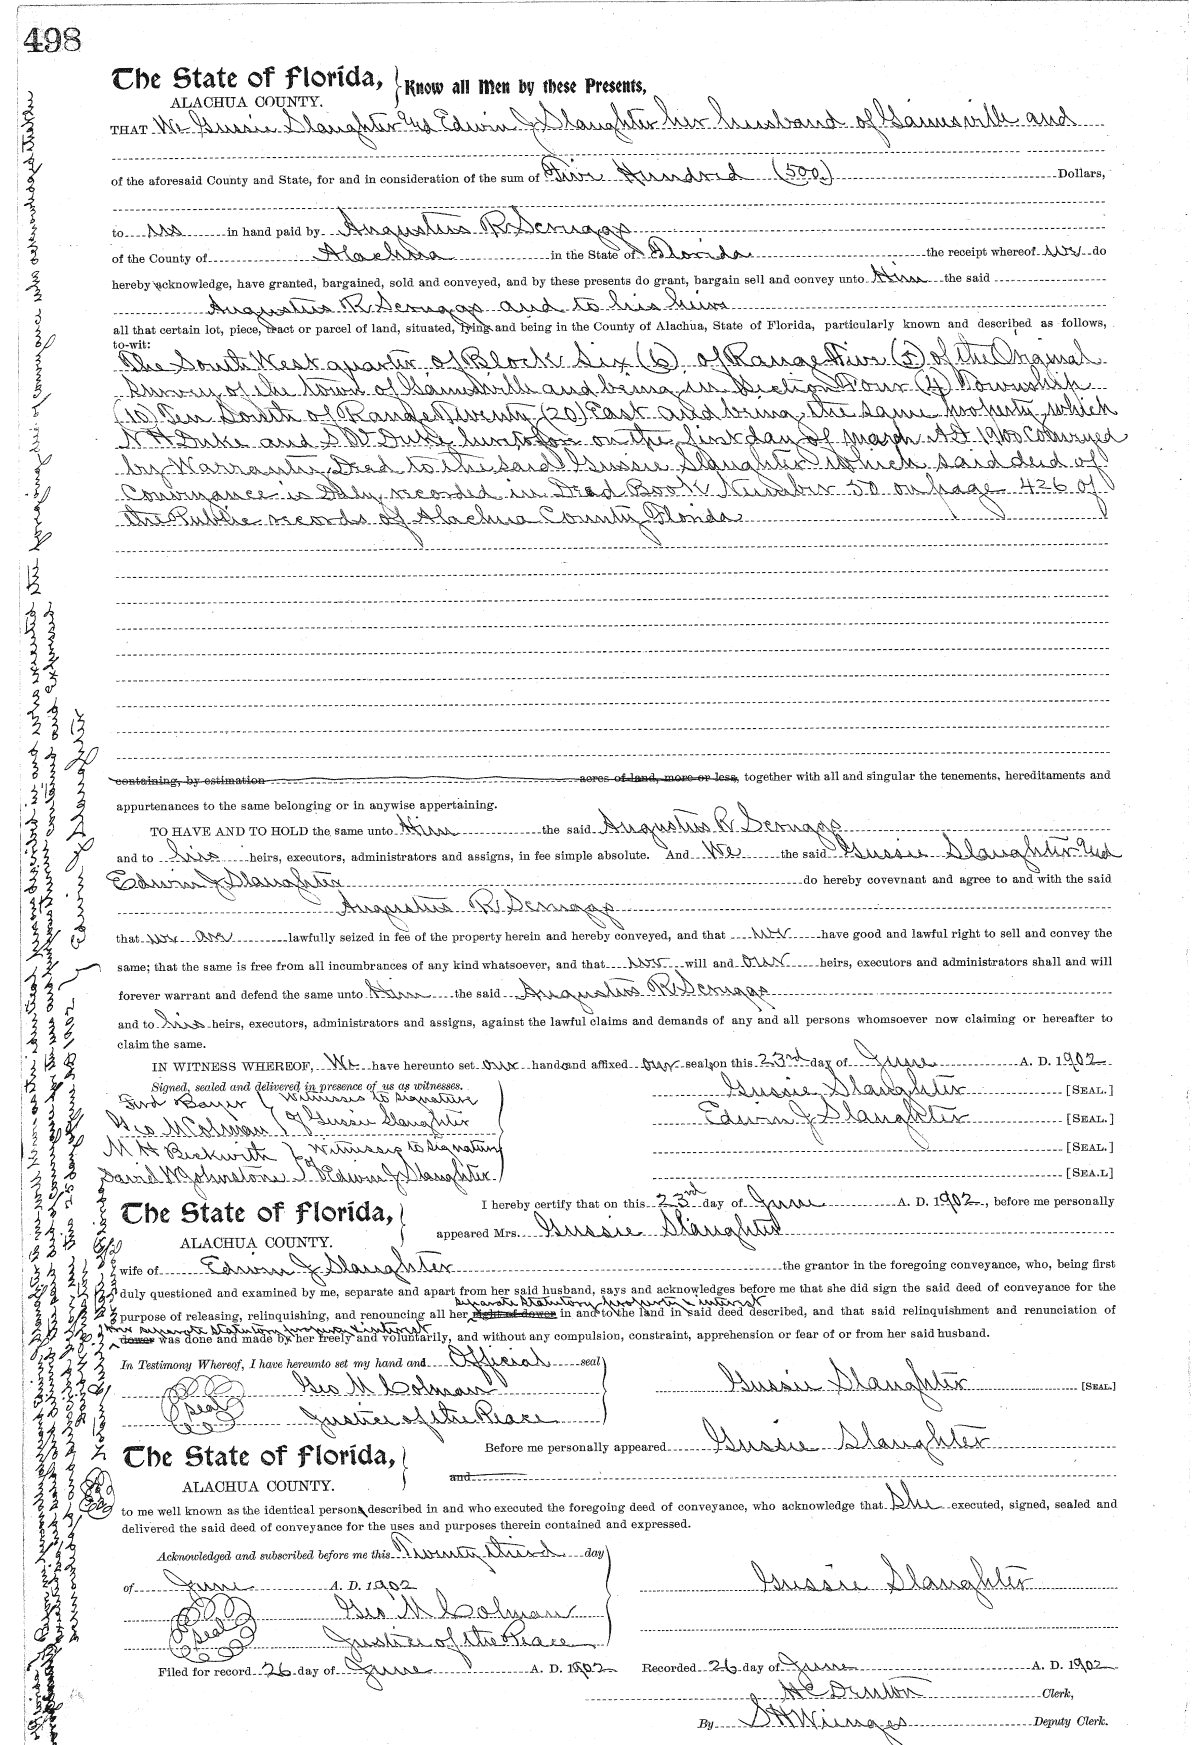 498
The State of Florida, Know all Men by these Presents,
ALACHUA COUNTY.
THAT We Gussie Slaughter and Edwin J Slaughter her husband of Gainesville and
of the aforesaid County and State, for and in consideration of the sum of Five Hundred (500) Dollars,
to us in hand paid by Augustus R Scruggs
of the County of Alachua in the State of Florida the receipt whereof we do
hereby acknowledge, have granted, bargained, sold and conveyed, and by these presents do grant, bargain sell and convey unto Him the said
Augustus R Scruggs and to his heirs
all that certain lot, piece, tract or parcel of land, situated, lying and being in the County of Alachua, State of Florida, particularly known and described as follows,
to-wit:
The South West quarter of Block Six (6) of Range Five (5) of the Original
Survey of the town of Gainesville and being in Section Four (4) Township
(10) Ten South of Range Twenty (20) East and being the same property which
N H Duke and S W Duke heretofore on the first day of March AD 1900 Conveyed
by Warranty Deed to the said Gussie Slaughter which said deed of
Conveyance is duly recorded in Deed Book Number 50 on page 426 of
the Public records of Alachua County Florida
containing, by estimation acres of land, more or less, together with all and singular the tenements, hereditaments and
appurtenances to the same belonging or in anywise appertaining.
TO HAVE AND TO HOLD the same unto Him the said Augustus R Scruggs
and to his heirs, executors, administrators and assigns, in fee simple absolute. And We the said Gussie Slaughter and
Edwin J Slaughter do hereby covevnant and agree to and with the said
Augustus R Scruggs
that we are lawfully seized in fee of the property herein and hereby conveyed, and that we have good and lawful right to sell and convey the
same; that the same is free from all incumbrances of any kind whatsoever, and that we will and our heirs, executors and administrators shall and will
forever warrant and defend the same unto Him the said Augustus R Scruggs
and to his heirs, executors, administrators and assigns, against the lawful claims and demands of any and all persons whomsoever now claiming or hereafter to
claim the same.
IN WITNESS WHEREOF, We have hereunto set our hand and affixed our seal on this 23rd day of June A. D. 1902
Signed, sealed and delivered in presence of us as witnesses. Gussie Slaughter [SEAL.]
Ferd Bayer Witnesses to signature
Geo M Colman of Gussie Slaughter Edwin J Slaughter [SEAL.]
M H Beckwith Witnesses to signature [SEAL.]
David W Johnstone of Edwin J Slaughter [SEAL]
The State of Florida, I hereby certify that on this 23rd day of June A. D. 1902, before me personally
ALACHUA COUNTY. appeared Mrs. Gussie Slaughter
wife of Edwin J Slaughter the grantor in the foregoing conveyance, who, being first
duly questioned and examined by me, separate and apart from her said husband, says and acknowledges before me that she did sign the said deed of conveyance for the
separate statutory property & interest
purpose of releasing, relinquishing, and renouncing all her right of dower in and to the land in said deed described, and that said relinquishment and renunciation of
her separate statutory property & interest
dower was done and made by her freely and voluntarily, and without any compulsion, constraint, apprehension or fear of or from her said husband.
In Testimony Whereof, I have hereunto set my hand and Official seal
Seal Geo M Colman Gussie Slaughter [SEAL.]
Justice of the Peace
The State of Florida, Before me personally appeared Gussie Slaughter
ALACHUA COUNTY. and
to me well known as the identical person described in and who executed the foregoing deed of conveyance, who acknowledge that She executed, signed, sealed and
delivered the said deed of conveyance for the uses and purposes therein contained and expressed.
Acknowledged and subscribed before me this Twenty third day
of June A. D. 1902 Gussie Slaughter
Seal Geo M Colman
Justice of the Peace
Filed for record 26 day of June A. D. 1902 Recorded 26 day of June A. D. 1902
H C Denton Clerk,
By S H Wienges Deputy Clerk.